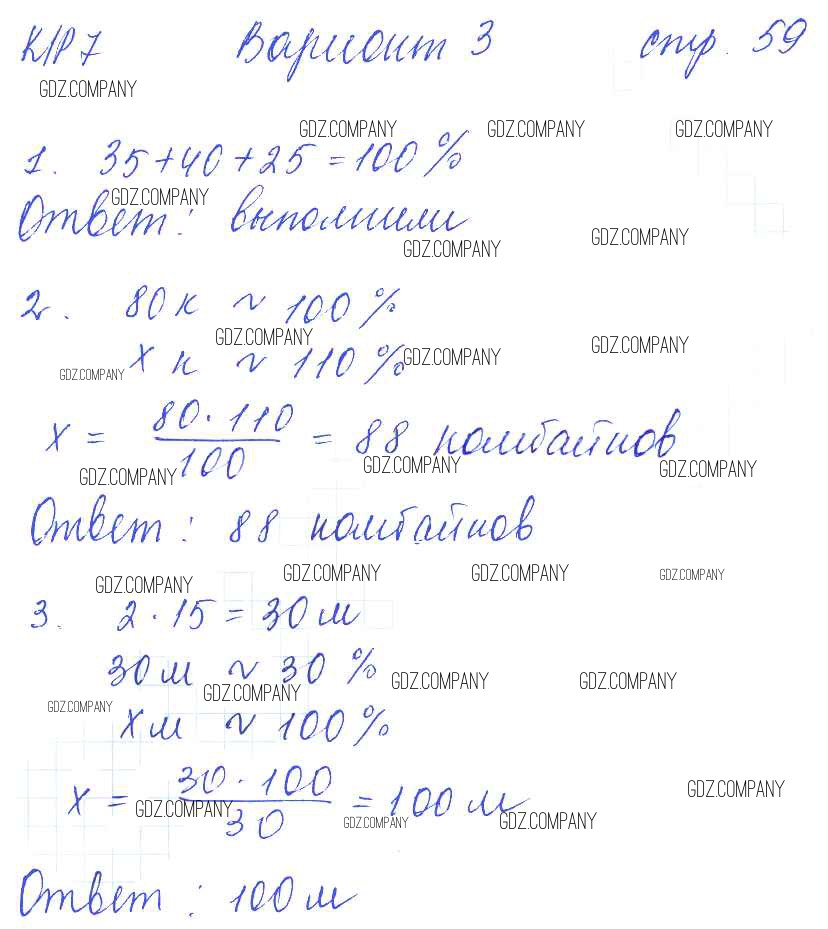 К/Р 7 Вариант 3 стр. 59
GDZ.COMPANY
GDZ.COMPANY GDZ.COMPANY GDZ.COMPANY
1. 35+40+25=100%
GDZ.COMPANY
Ответ: выполнили
GDZ.COMPANY GDZ.COMPANY
2. 80 к ~ 100%
GDZ.COMPANY GDZ.COMPANY
х к ~ 110%
GDZ.COMPANY GDZ.COMPANY
х = 80·110/100 = 88 комбайнов
GDZ.COMPANY GDZ.COMPANY GDZ.COMPANY
Ответ: 88 комбайнов
GDZ.COMPANY GDZ.COMPANY GDZ.COMPANY GDZ.COMPANY
3. 2·15=30 м
30 м ~ 30%
GDZ.COMPANY GDZ.COMPANY GDZ.COMPANY
GDZ.COMPANY
х м ~ 100%
х = 30·100/30 = 100 м
GDZ.COMPANY GDZ.COMPANY GDZ.COMPANY GDZ.COMPANY
Ответ: 100 м